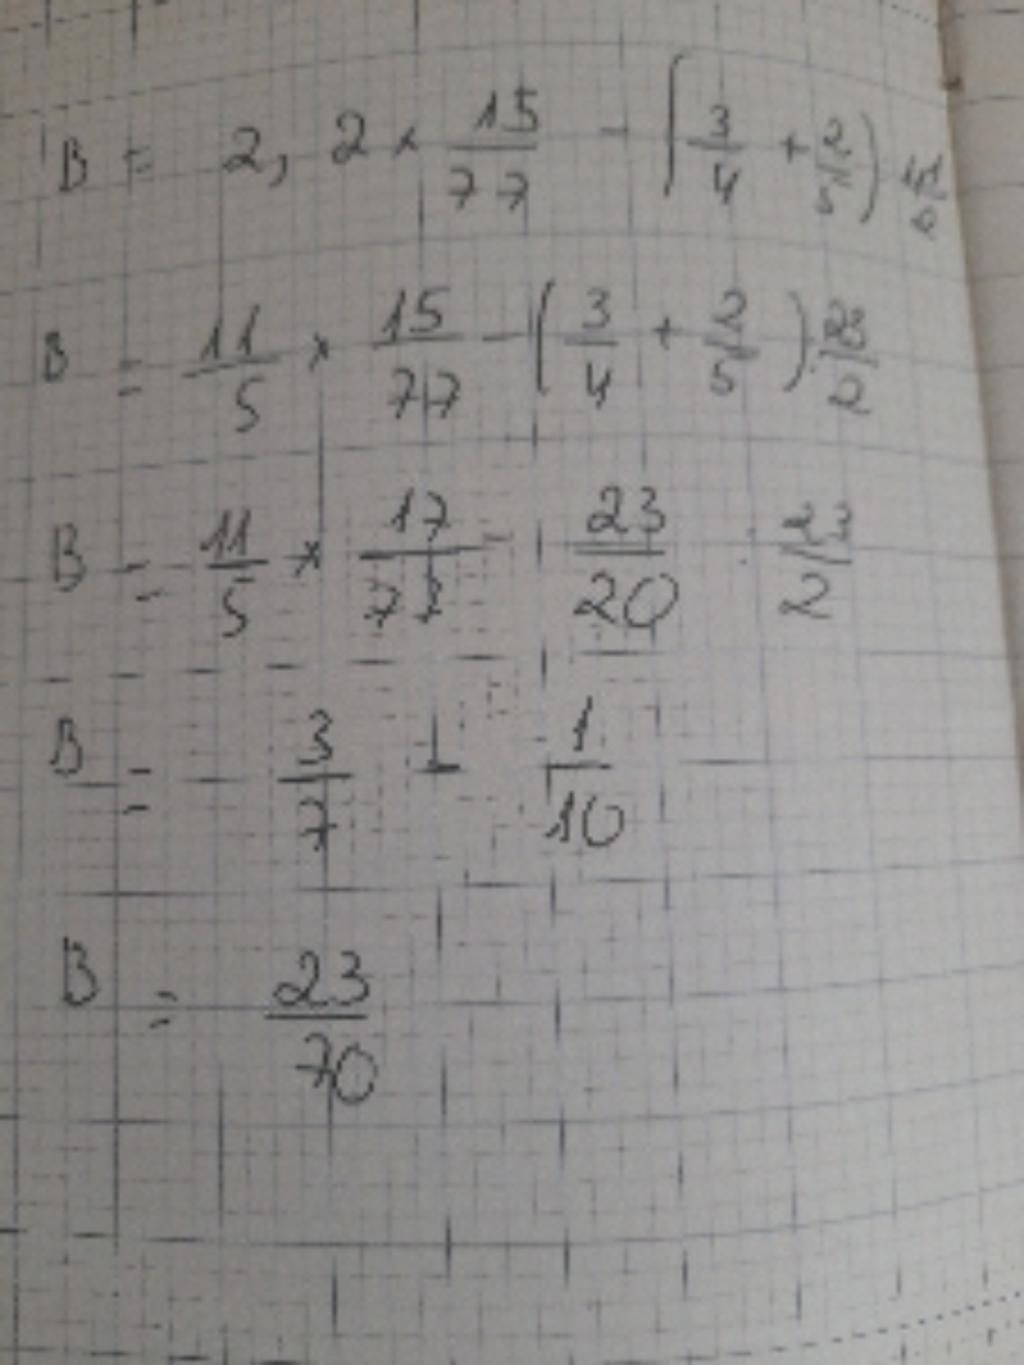 B = 2,2 × 15/77 - (3/4 + 2/5)
B = 11/5 × 15/77 - (3/4 + 2/5) : 23/2
B = 11/5 × 17/77 - 23/20 : 23/2
B = 3/7 - 1/10
B = 23/70